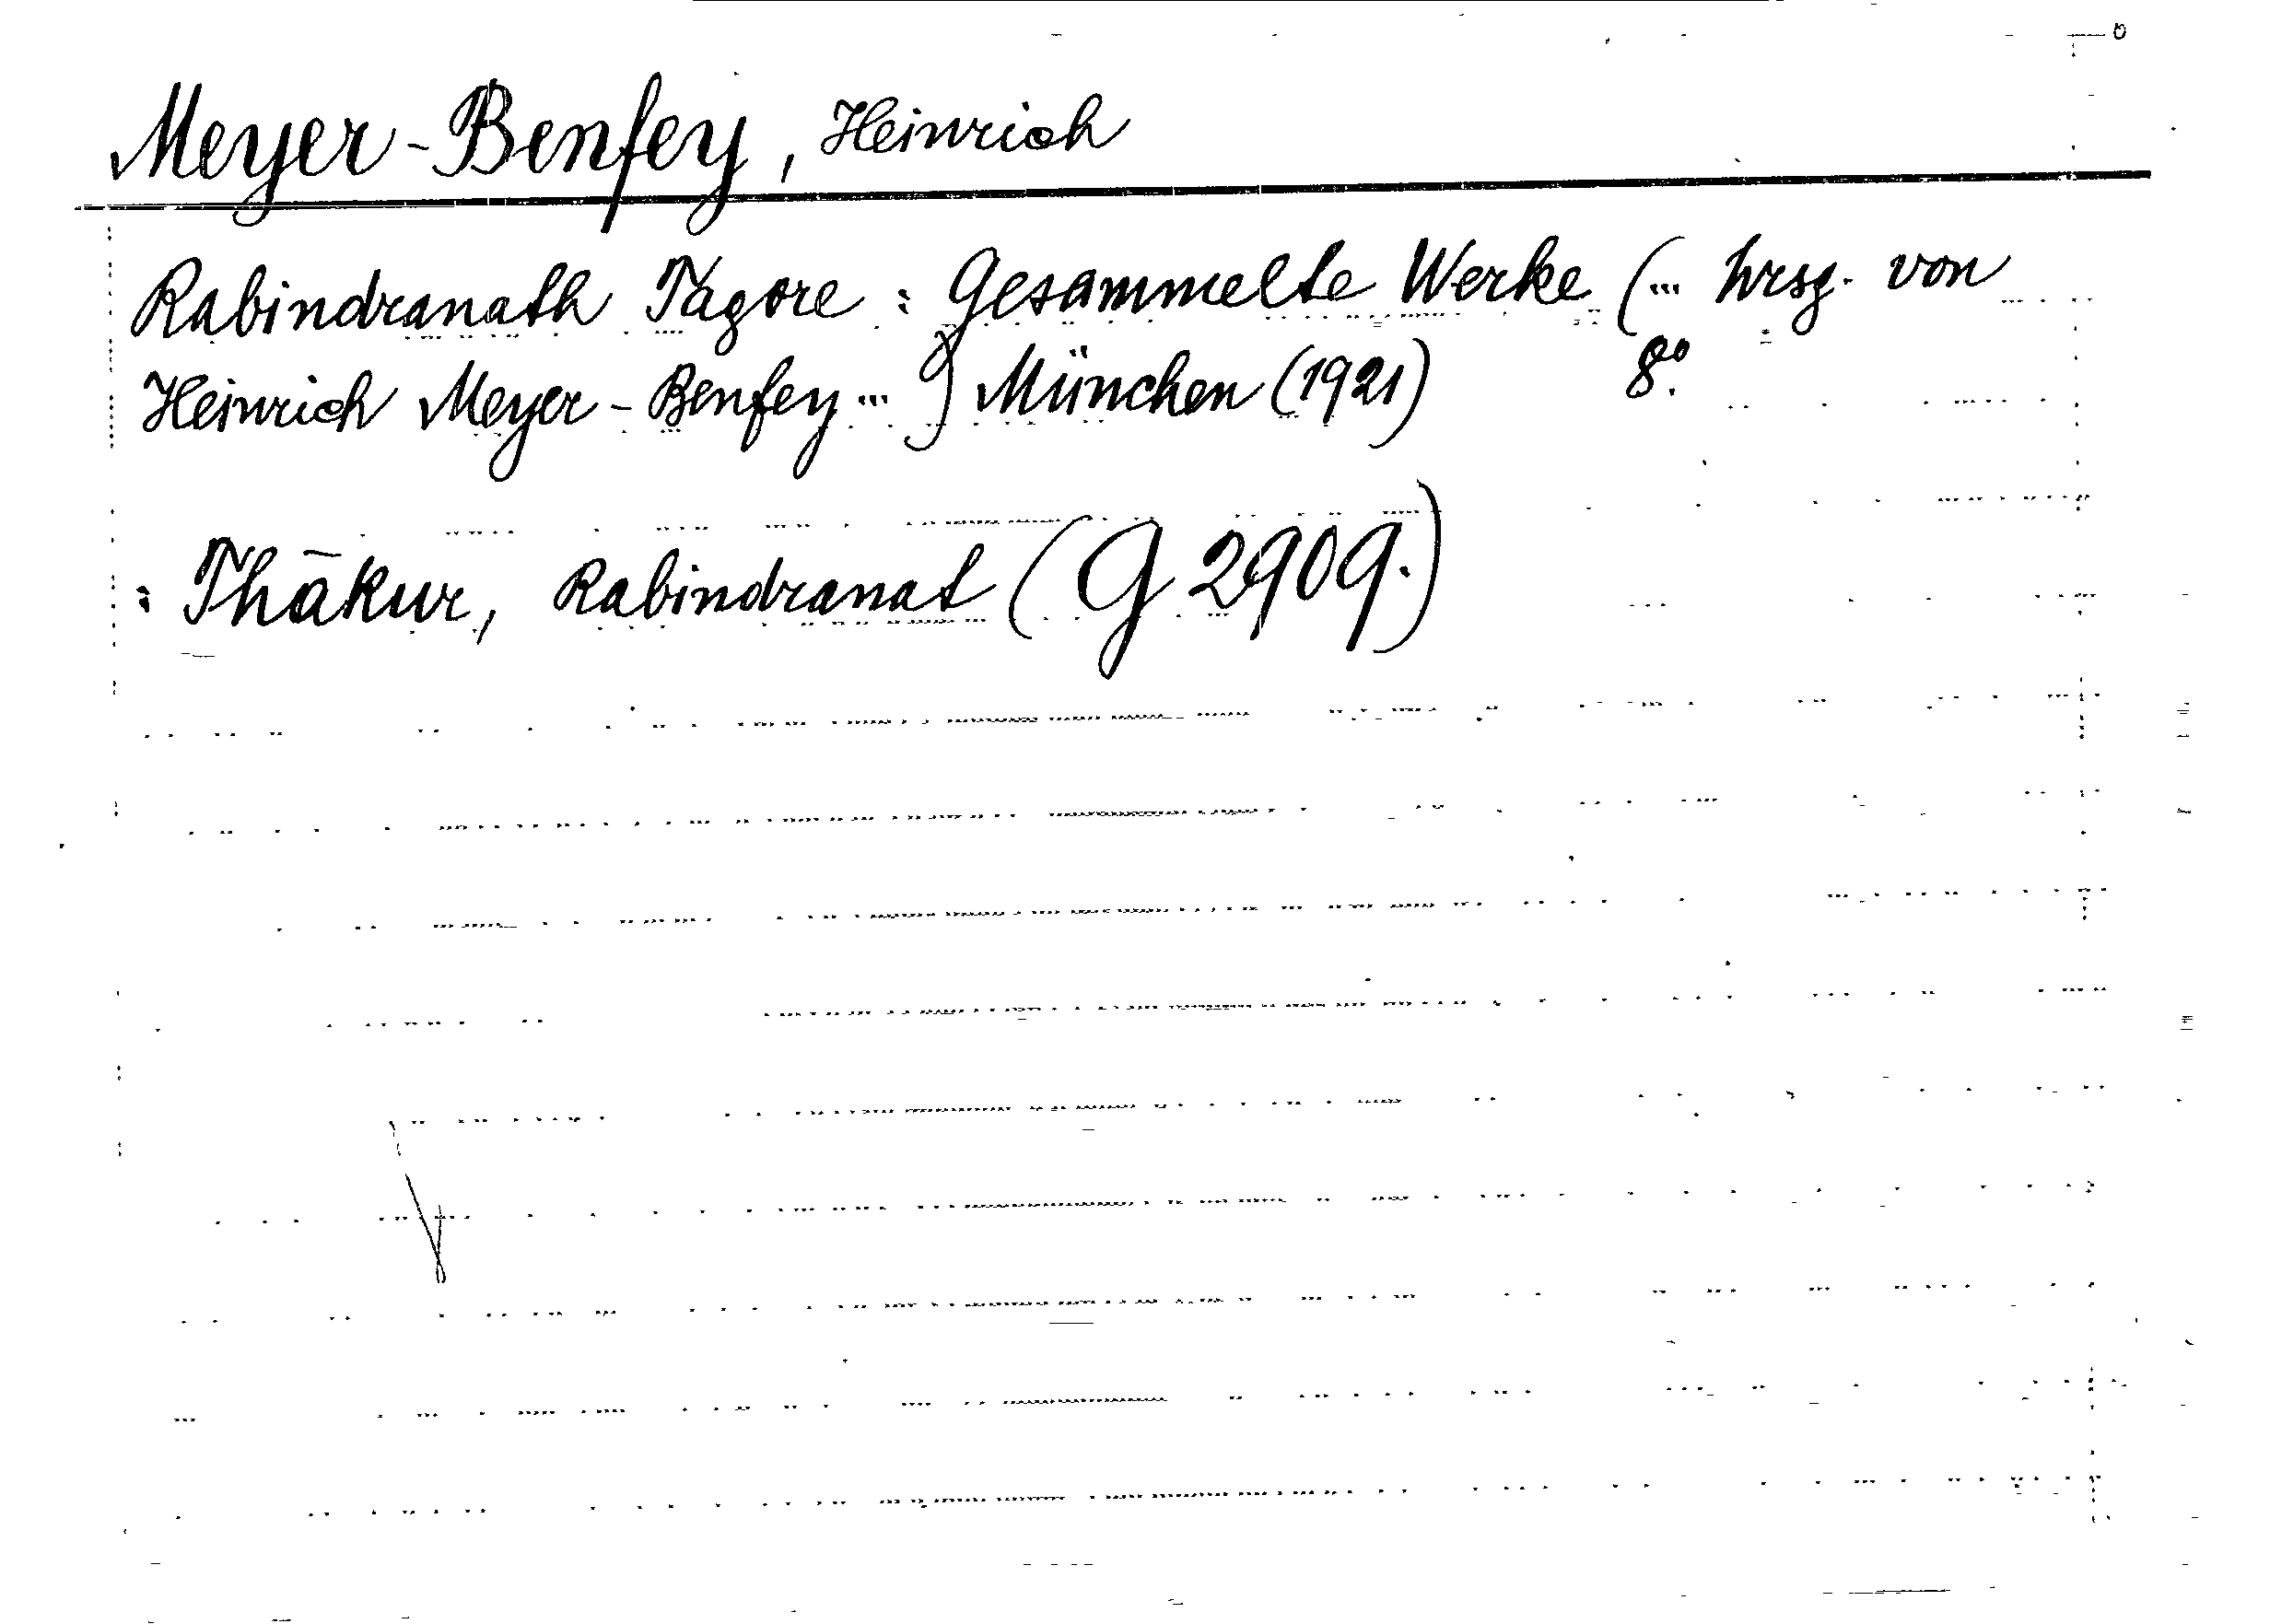 Meyer-Benfey, Heinrich
Rabindranath Tagore : Gesammelte Werke (... hrsg. von
Heinrich Meyer-Benfey ... ) München (1921) 8º.
: Thākur, Rabindranat (G 2909.)